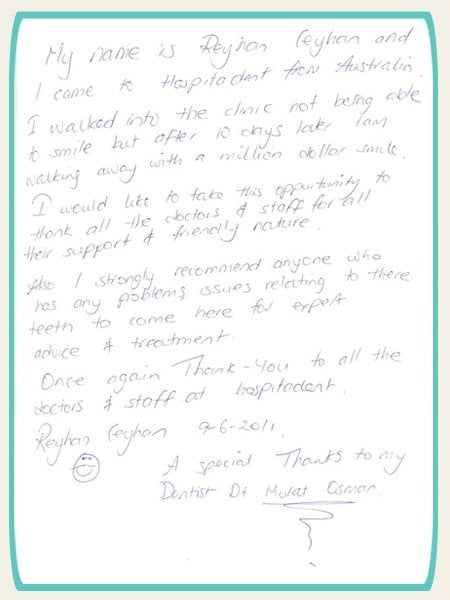 My name is Reyhan Ceyhan and
I came to Hospitadent from Australia.
I walked into the clinic not being able
to smile but after 10 days later I am
walking away with a million dollar smile.
I would like to take this oppurtunity to
thank all the doctors & staff for all
their support & friendly nature.
Also I strongly recommend anyone who
has any problems issues relating to there
teeth to come here for expert
advice & treatment.
Once again Thank-You to all the
doctors & staff at hospitadent.
Reyhan Ceyhan 9-6-2011.
A special Thanks to my
Dentist Dt Murat Osman.